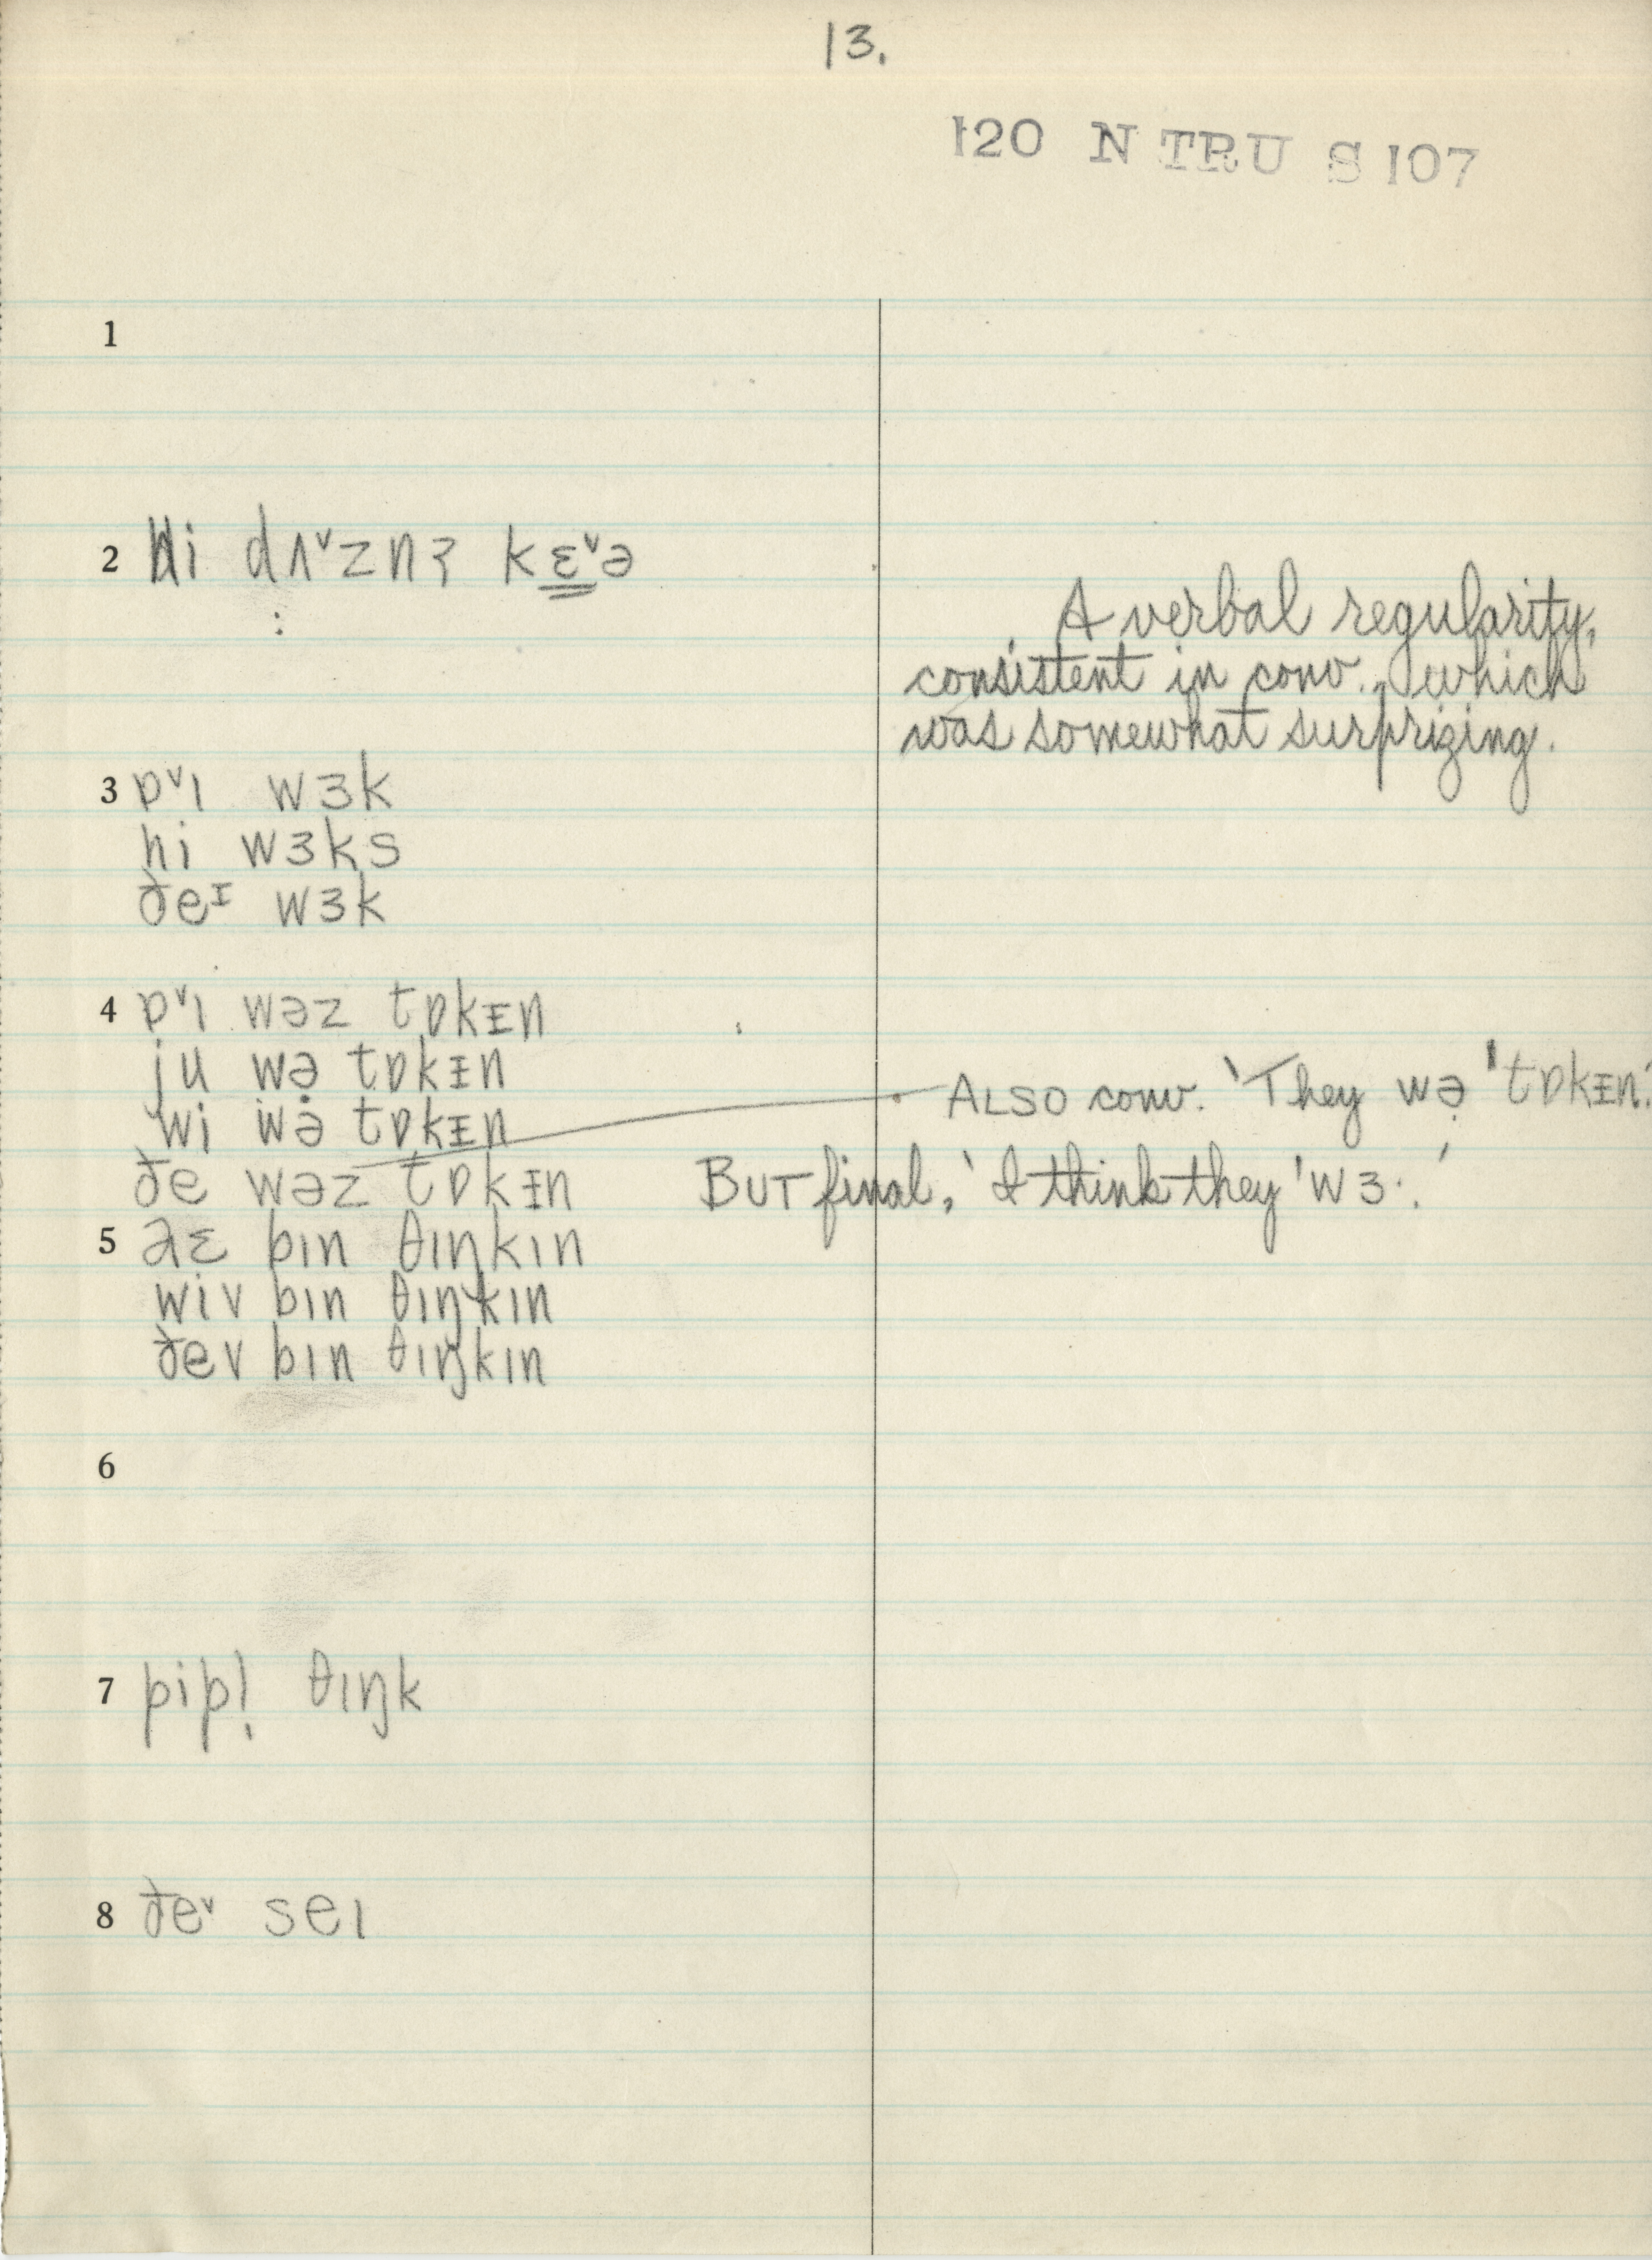 13.
120 N TRU S 107
1
2 hi dʌˇznʔ kɛˇə
A verbal regularity,
consistent in conv., which
was somewhat surprizing.
3 ɒˇı wɜk
hi wɜks
ðeᶦ wɜk
4 ɒˇı wəz tɒkᵻn
ju wə̣ tɒkᵻn
wi wə tɒkᵻn
ALSO conv. 'They wə̣ 'tɒkᵻn.'
ðe wəz tɒkᵻn
BUT final, 'I think they 'wɜ·.'
5 bın θıŋkın
wiv bın θıŋkın
ðev bın θıŋkın
6
7 pipl̩ θıŋk
8 ðeˇ seı